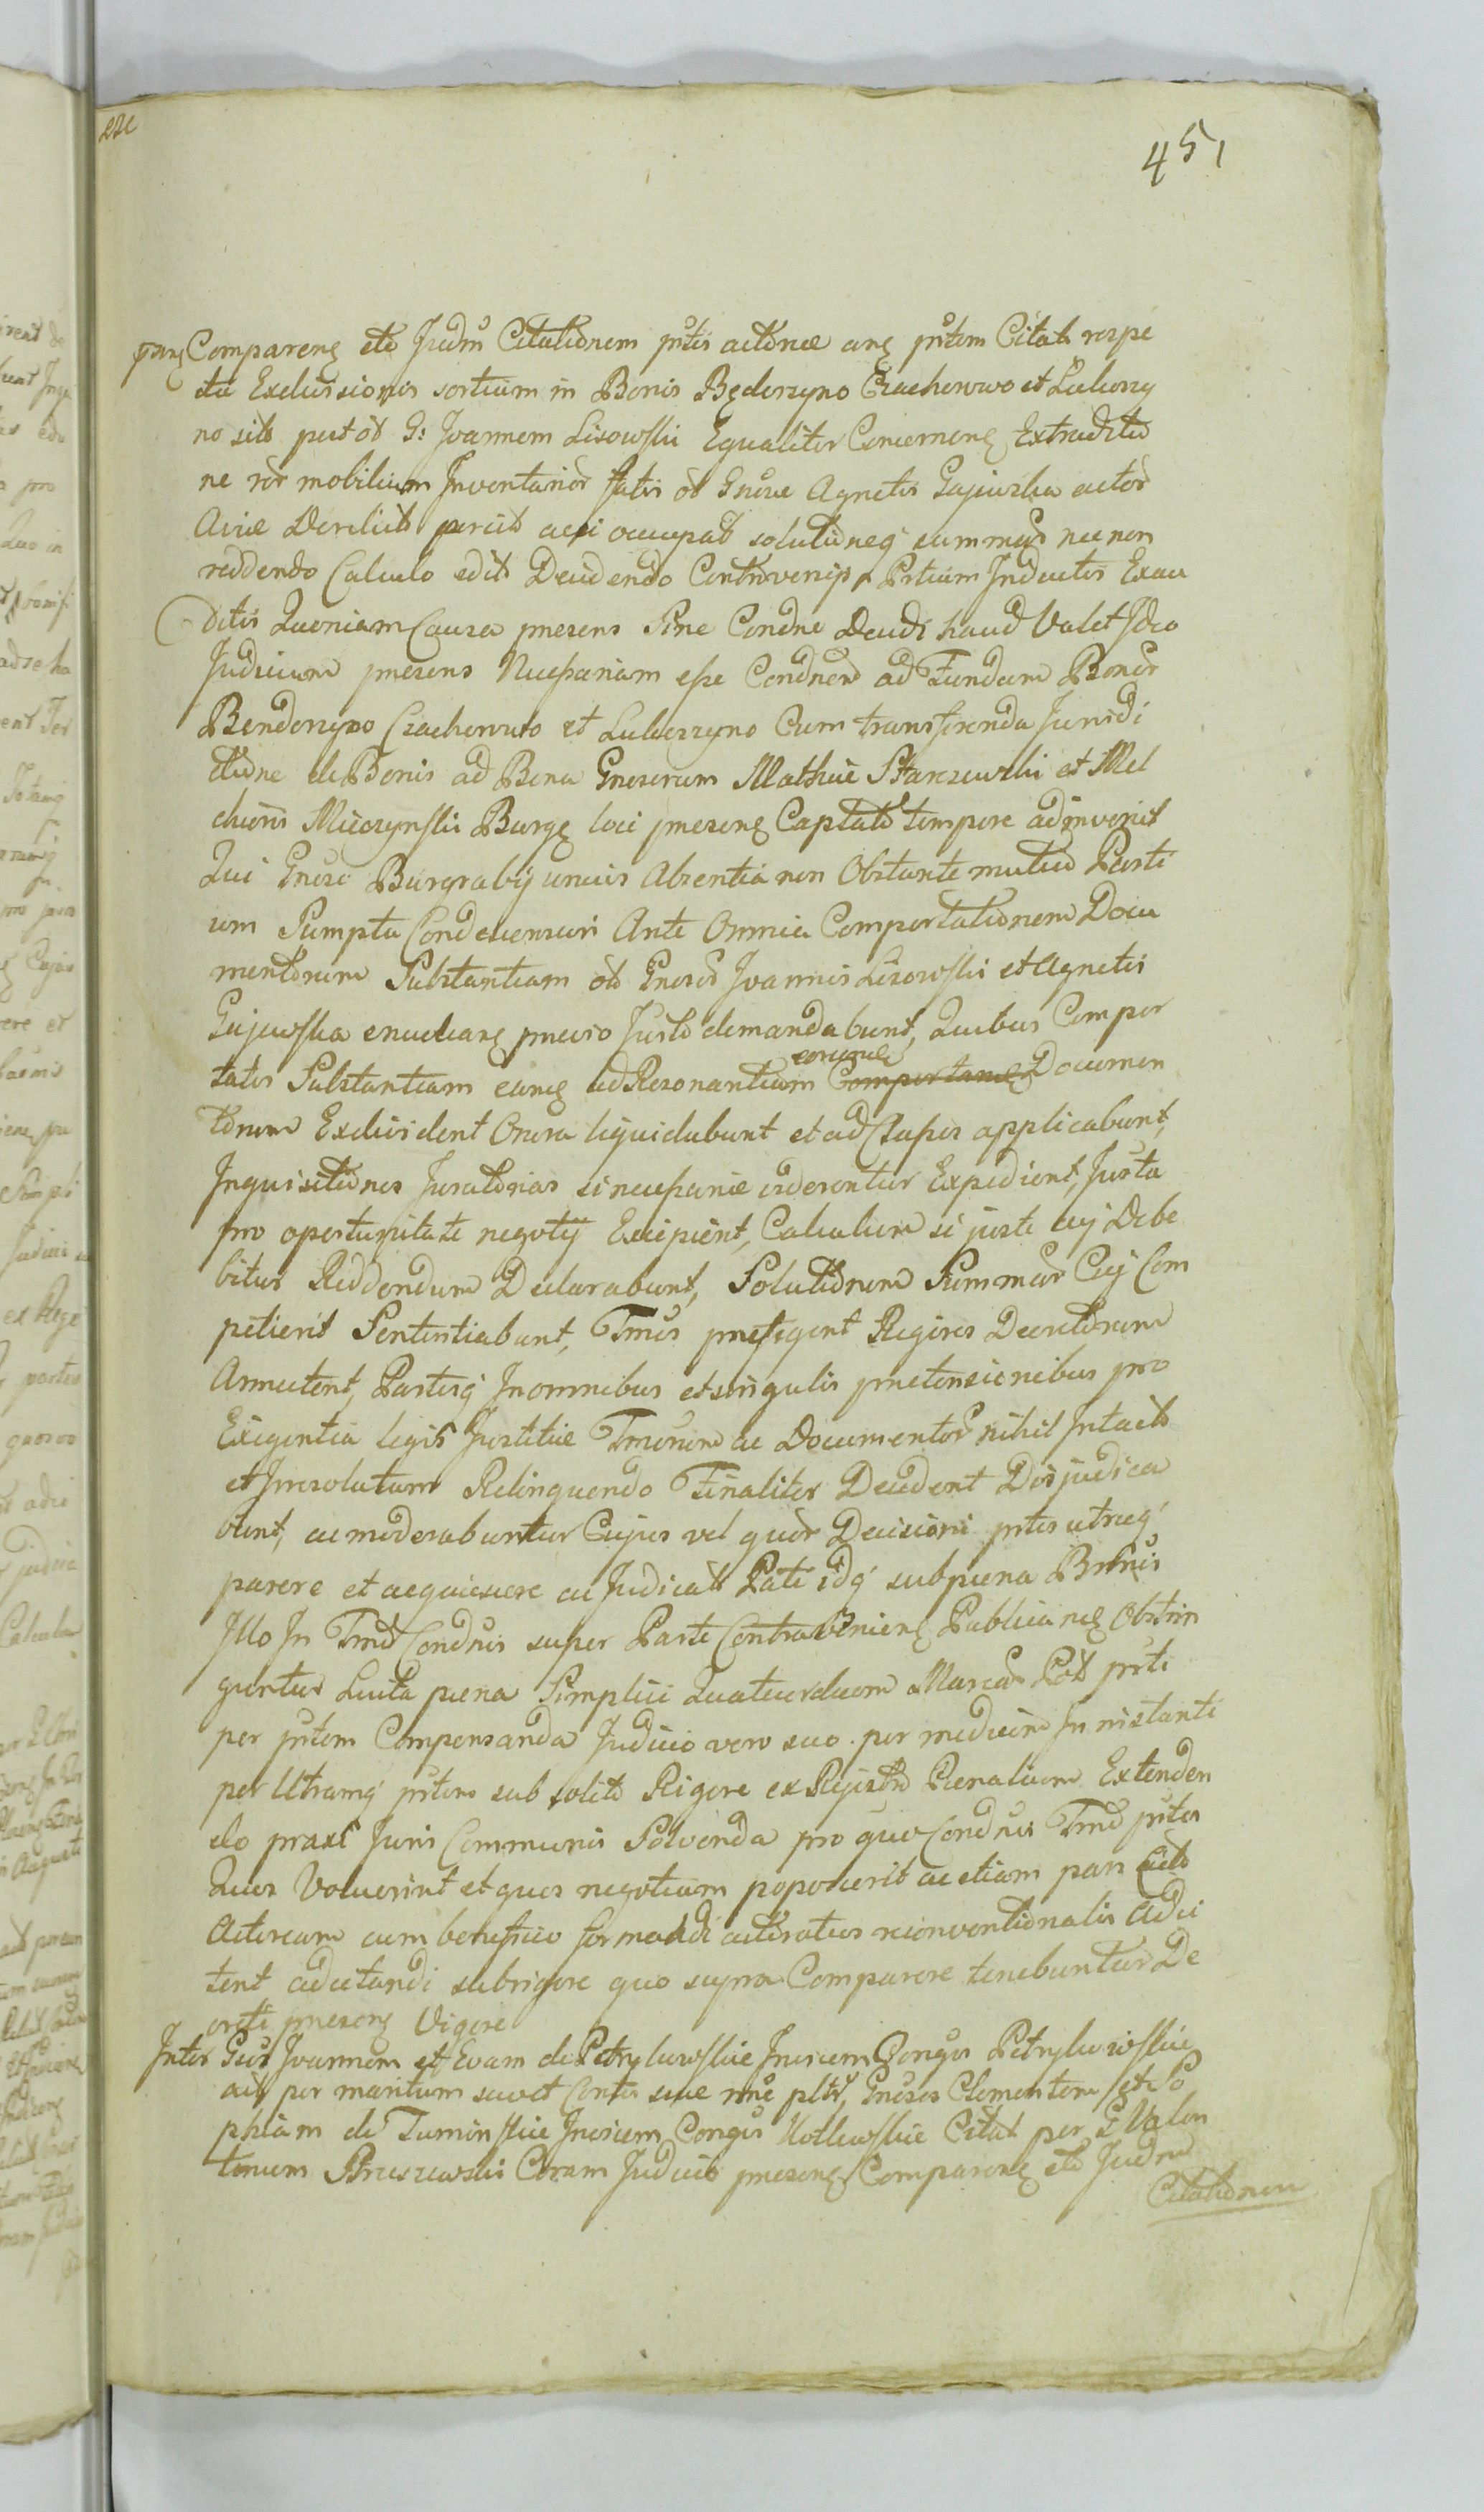 451
Comparens etc Judm Citationem ptis actoreae ans ptem Citat respe
ctu Exdivisionis sortium in Bonis Będorzyno Czachorowo et Luborzy
no sito put ob G: Joannem Lisowski Equaliter Concernens Extraditio
ne rer mobilium Inventarior fatis ob Gnosae Agnetis Gajewska actor
Aviae Derelict percit acsi occupat solutioneq summar nec non
reddendo Calculo edit Decidendo Controversijs Ptium Inductis Exau
ditis Quoniam Causa praesens Sine Condne Decidi haud Valet Ideo
Judicium praesens Necessariam esse Condnem ad Fundum Bonor
Bendorzyno Czachorowo et Luborzyno Cum transferenda Jurisdi
ctione de Bonis ad Bona Gnosorum Mathiae Starczewski et Mel
chioris Mieczynski Burgs loci praesens Captato tempore adinvenit
Qui Gnosi Burgrabij unius Absentia non Obstante mutuo Parti
um Sumpta Condescensuri Ante Omnia Comportationem Docu
mentorum Substantiam ob Gnosos Joannis Lisowski et Agnetis
Gajewska enucleans praevio Justo demandabunt, Quibus Compor
tatis Substantiam eamq ad Resonantiam eorumq Comportans Documen
torum Exdivident Onera liquidabunt et ad Classis applicabunt,
Inquisitiones Juratorias si necessariae viderentur Expedient, Justa
pro oportunitate negotij Excipient, Calculum si juste cuj Debe
bitur Reddendum Declarabunt, Solutionem Summar Cuj Com
petierit Sententiabunt, Tmos praefigent Rigores Decretorum
Annectent, Partesq In omnibus et singulis praetensionibus pro
Exigentia legis Justitiae Tmorum ac Documentor nihil Intact
et Irresolutum Relinquendo Finaliter Decident Disjudica
bunt, ac moderabuntur Cujus vel quor Decisioni ptes utraeq
parere et acquiescere ac Judicat Pati idq sub paena Bnnis
Illo In Tmo Condnis super Parte Contraveniens Publicans Obstrin
guntur Lucta paena Simplici Quatuordecim Marcar Pol pti
per ptem Compensanda Judicio vero suo per medium In instanti
per Utramq ptem sub solito Rigore ex Registro Paenalium Extenden
do praxi Juris Communis Solvenda pro quo Condnis Tmo ptes
Quos Voluerint et quos negotium poposcerit ac etiam pars Citt
Actoream cum beneficio formandi actoratus reconventionalis Adci
tent, adcitandi sub rigore quo supra Comparere tenebuntur De
creti praesens Vigore
Inter Gsos Joannem et Evam de Petrykowskie Invicem Conges Petrykowskie
act per maritum suo et Contis suae nne pltr, Gnosos Clementem et So
phiam de Tuminskie Invicem Conges Kotkowskie Citat per G Valen
tinum Strzeszewski Coram Judicio praesens Comparens etc Judm
Citationem